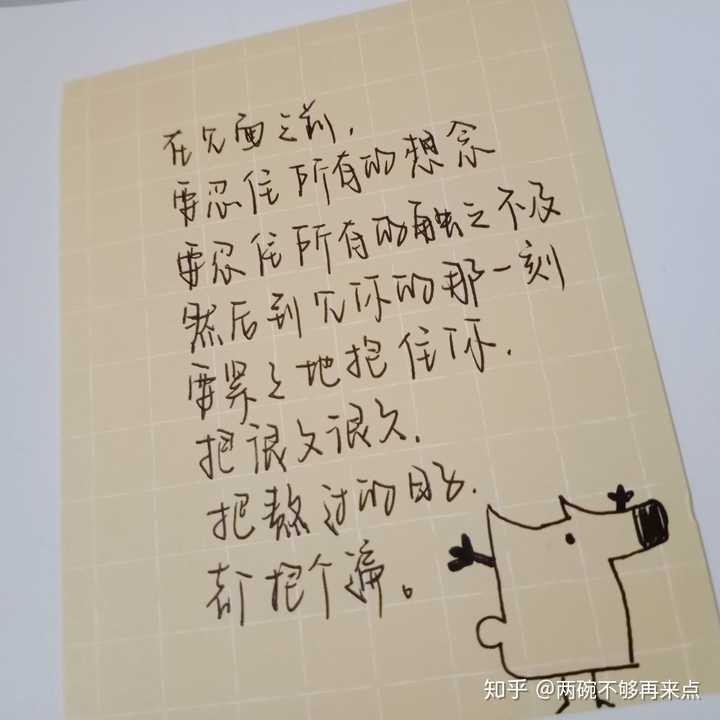 在见面之前，
要忍住所有的想念
要忍住所有的触之不及
然后到见你的那一刻
要紧紧地抱住你．
抱很久很久．
把熬过的日子．
都抱个遍。
知乎 @两碗不够再来点